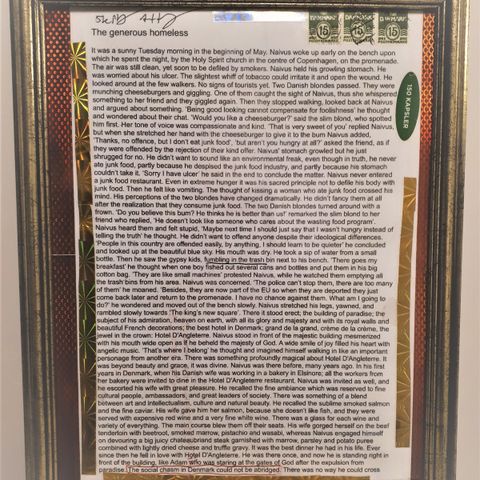 The generous homeless
DANMARK DANMARK DANMARK
15 15 15
150 KAPSLER
It was a sunny Tuesday morning in the beginning of May. Naivus woke up early on the bench upon
which he spent the night, by the Holy Spirit church in the centre of Copenhagen, on the promenade.
The air was still clean, yet soon to be defiled by smokers. Naivus held his growling stomach. He
was worried about his ulcer. The slightest whiff of tobacco could irritate it and open the wound. He
looked around at the few walkers. No signs of tourists yet. Two Danish blondes passed. They were
munching cheeseburgers and giggling. One of them caught the sight of Naivus, thus she whispered
something to her friend and they giggled again. Then they stopped walking, looked back at Naivus
and argued about something. 'Being good looking cannot compensate for foolishness' he thought
and wondered about their chat. 'Would you like a cheeseburger?' said the slim blond, who spotted
him first. Her tone of voice was compassionate and kind. 'That is very sweet of you' replied Naivus,
but when she stretched her hand with the cheeseburger to give it to the bum Naivus added,
'Thanks, no offence, but I don't eat junk food', 'but aren't you hungry at all?' asked the friend, as if
they were offended by the rejection of their kind offer. Naivus' stomach growled but he just
shrugged for no. He didn't want to sound like an environmental freak, even though in truth, he never
ate junk food, partly because he despised the junk food industry, and partly because his stomach
couldn't take it. 'Sorry I have ulcer' he said in the end to conclude the matter. Naivus never entered
a junk food restaurant. Even in extreme hunger it was his sacred principle not to defile his body with
junk food. Then he felt like vomiting. The thought of kissing a woman who ate junk food crossed his
mind. His perceptions of the two blondes have changed dramatically. He didn't fancy them at all
after the realization that they consume junk food. The two Danish blondes turned around with a
frown. 'Do you believe this bum? He thinks he is better than us!' remarked the slim blond to her
friend who replied, 'He doesn't look like someone who cares about the wasting food program'.
Naivus heard them and felt stupid, 'Maybe next time I should just say that I wasn't hungry instead of
telling the truth' he thought. He didn't want to offend anyone despite their ideological differences.
'People in this country are offended easily, by anything, I should learn to be quieter' he concluded
and looked up at the beautiful blue sky. His mouth was dry. He took a sip of water from a small
bottle. Then he saw the gypsy kids, fumbling in the trash bin next to his bench. 'There goes my
breakfast' he thought when one boy fished out several cans and bottles and put them in his big
cotton bag. 'They are like small machines' protested Naivus, while he watched them emptying all
the trash bins from his area. Naivus was concerned. 'The police can't stop them, there are too many
of them' he moaned. 'Besides, they are now part of the EU so when they are deported they just
come back later and return to the promenade. I have no chance against them. What am I going to
do?' he wondered and moved out of the bench slowly. Naivus stretched his legs, yawned, and
rambled slowly towards 'The king's new square'. There it stood erect; the building of paradise; the
subject of his admiration, heaven on earth, with all its glory and majesty and with its royal walls and
beautiful French decorations; the best hotel in Denmark; grand de la grand, crème de la crème, the
jewel in the crown: Hotel D'Angleterre. Naivus stood in front of the majestic building mesmerized
with his mouth wide open as if he beheld the majesty of God. A wide smile of joy filled his heart with
angelic music. 'That's where I belong' he thought and imagined himself walking in like an important
personage from another era. There was something profound magical about Hotel D'Angleterre. It
was beyond beauty and grace, it was divine. Naivus was there before, many years ago. In his first
years in Denmark, when his Danish wife was working in a bakery in Elsinore; all the workers from
her bakery were invited to dine in the Hotel D'Angleterre restaurant. Naivus was invited as well, and
he escorted his wife with great pleasure. He recalled the fine ambiance which was reserved to fine
cultural people, ambassadors, and great leaders of society. There was something of a blend
between art and Intellectualism, culture and natural beauty. He recalled the sublime smoked salmon
and the fine caviar. His wife gave him her salmon, because she doesn't like fish, and they were
served with expensive red wine and a very fine white wine. There was a glass for each wine and
variety of everything. The main course blew them off their seats. His wife gorged herself on the beef
tenderloin with beetroot, smoked marrow, pistachio and wasabi, whereas Naivus engaged himself
on devouring a big juicy chateaubriand steak garnished with marrow, parsley and potato puree
combined with lightly dried cheese and truffle gravy. It was the best dinner he had in his life. Ever
since then he fell in love with Hotel D'Angleterre. He was there once, and now he is standing right in
front of the building, like Adam who was staring at the gates of God after the expulsion from
paradise. The social chasm in Denmark could not be abridged. There was no way he could cross